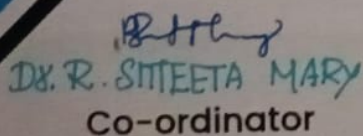 Dr. R. SMEETA MARY
Co-ordinator